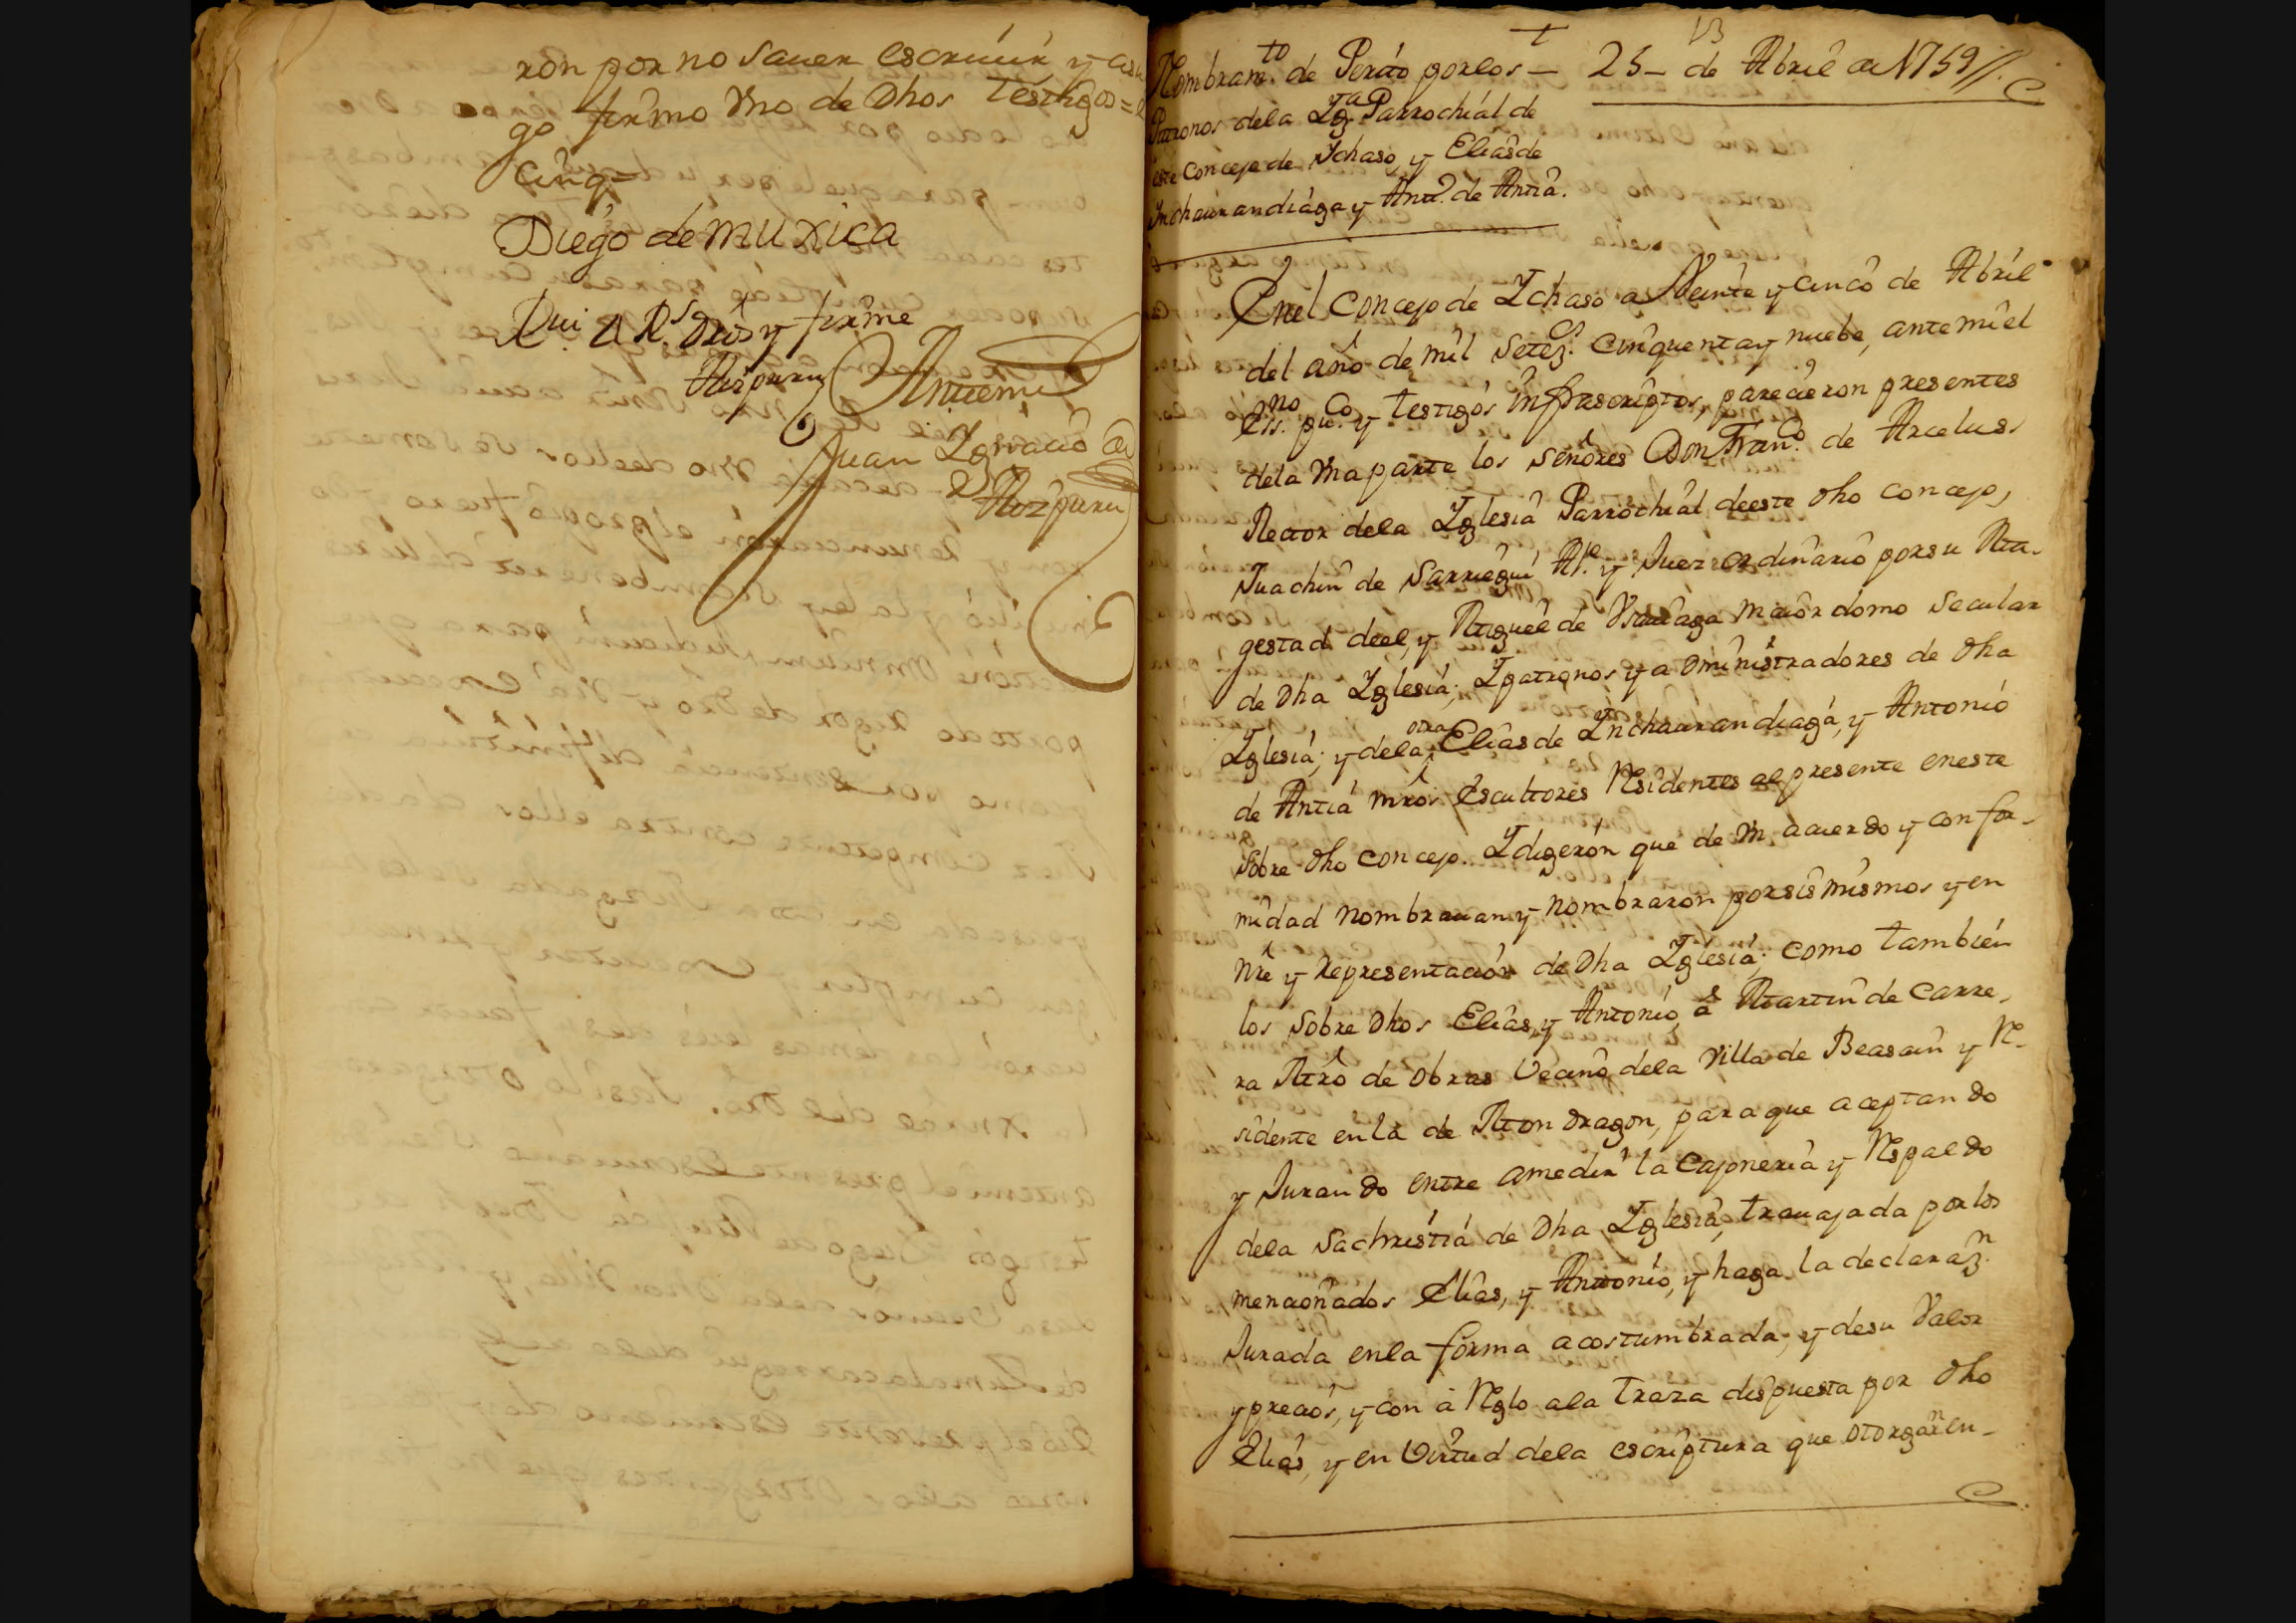 ron por no Saver escriuir y a su
go firmo Vno de Dhos Testigos =
cinq=
Diego de muxica
Rui A Rs. Dros y firme
Aizpuru Antemi
Juan Ignacio de
Aizpuru
13
Nombramto. de Perito por los — 25 — de Abril de 1759//.
Patronos dela Yga. Parrochial de
este concejo de Ychaso, y Elias de
Ynchaurandiaga y Anto. de Antia.
Enel Concejo de Ychaso a Veinte y cinco de Abril
del año de mil Setezs. cinquenta y nuebe, ante mi el
Essno. puco. y testigos infrascriptos, parecieron presentes
dela Vna parte los señores Don Franco. de Arcelus
Rector dela Yglesia Parrochial deeste dho concejo,
Juachin de Sarriegui Alce. y Juez ordinario por su Ma-
gestad deel, y Miguel de Vsurraga maiordomo Secular
de Dha Yglesia; Ypatronos y administradores de Dha
Yglesia; y dela otra Elias de Ynchaurandiaga, y Antonio
de Antia mros Escultores Residentes al presente eneste
Sobre dho concejo. Ydigeron que de Vn acuerdo y confor-
midad nombrauan y nombraron por sis mismos y en
nre y Representacion de Dha Yglesia; como tambien
los Sobre Dhos Elias, y Antonio a Martin de Carre-
ra Mro de Obras Vecino dela Villa de Beasain y Re-
sidente en la de Mondragon, para que aceptando
y Jurando entre amedir la Cajoneria y Respaldo
dela Sachristia de Dha Yglesia, trauajada por los
mencionados Elias, y Antonio, y haga la declarazn.
Jurada enla forma acostumbrada; y desu Valor
y precios, y con a Reglo ala Traza dispuesta por Dho
Elias, y en Virtud dela escriptura que otorgarn en-